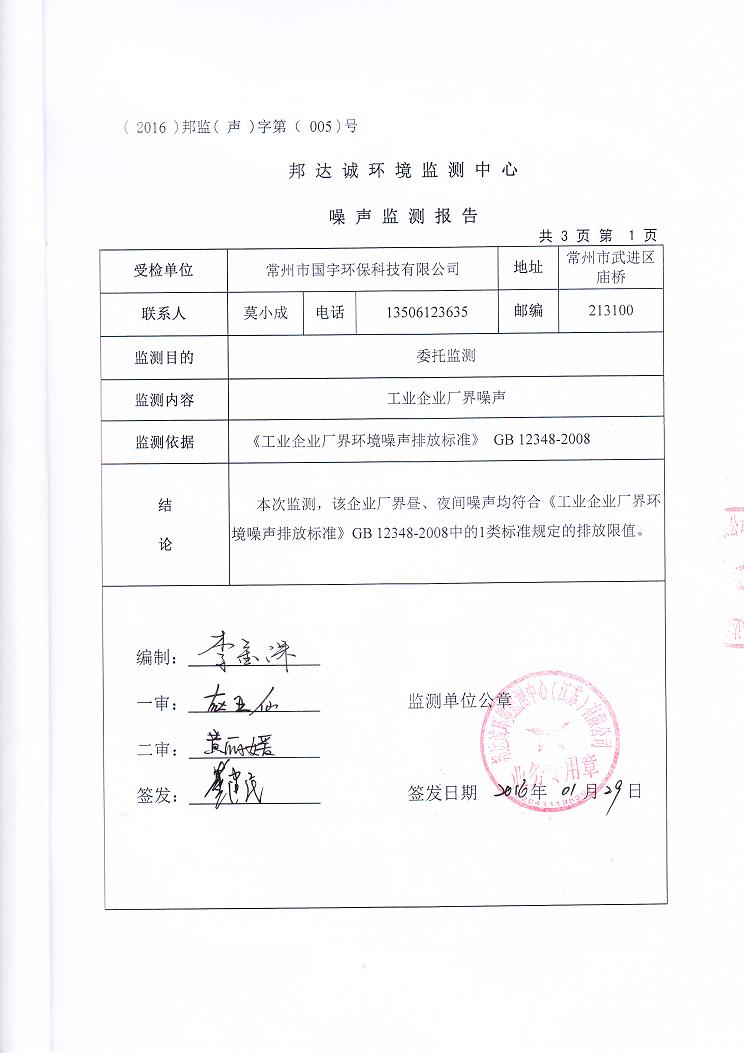 （ 2016 ）邦监（ 声 ）字第（ 005）号
邦达诚环境监测中心
噪声监测报告
共 3 页 第 1 页
受检单位 常州市国宇环保科技有限公司 地址 常州市武进区
庙桥
联系人 莫小成 电话 13506123635 邮编 213100
监测目的 委托监测
监测内容 工业企业厂界噪声
监测依据 《工业企业厂界环境噪声排放标准》 GB 12348-2008
结
论
本次监测，该企业厂界昼、夜间噪声均符合《工业企业厂界环
境噪声排放标准》GB 12348-2008中的1类标准规定的排放限值。
编制：
一审：
二审： 黄丽媛
签发：
监测单位公章
邦达诚环境监测中心（江苏）有限公司
业务专用章
签发日期 2016年 01月29日